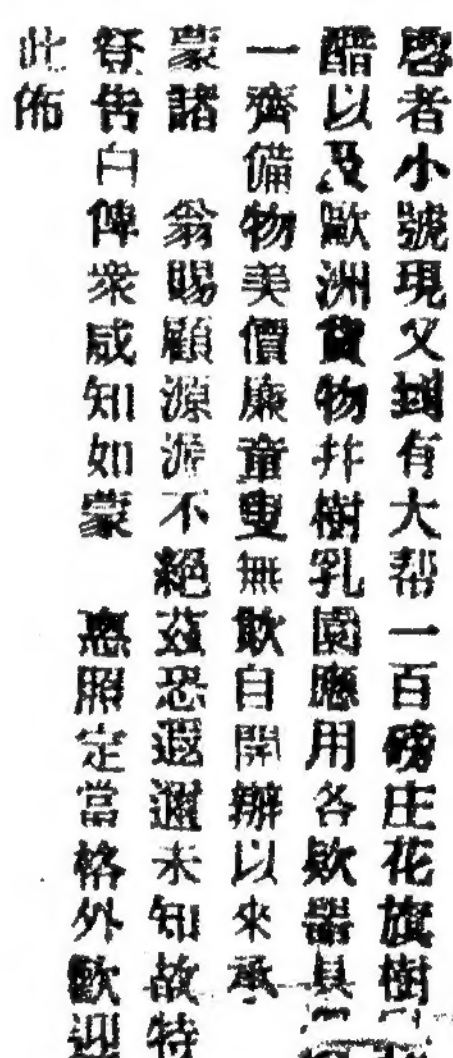 啓者小號現又到有大帮一百磅庄花旗樹
醋以及歐洲貨物并樹乳園應用各欵器具
一齊備物美價廉童叟無欺自開辦以來承
蒙諸 翁賜顧源源不絕茲恐遐邇未知故特
登告白俾衆咸知如蒙 惠照定當格外歡迎
此佈